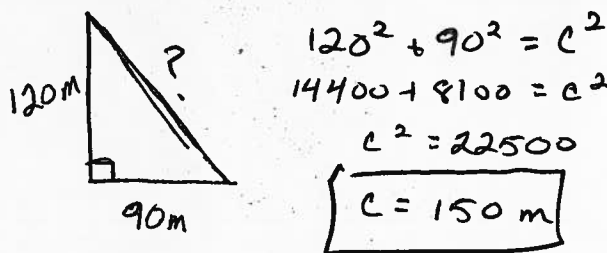 120m
?
90m
120² + 90² = c²
14400 + 8100 = c²
c² = 22500
c = 150 m